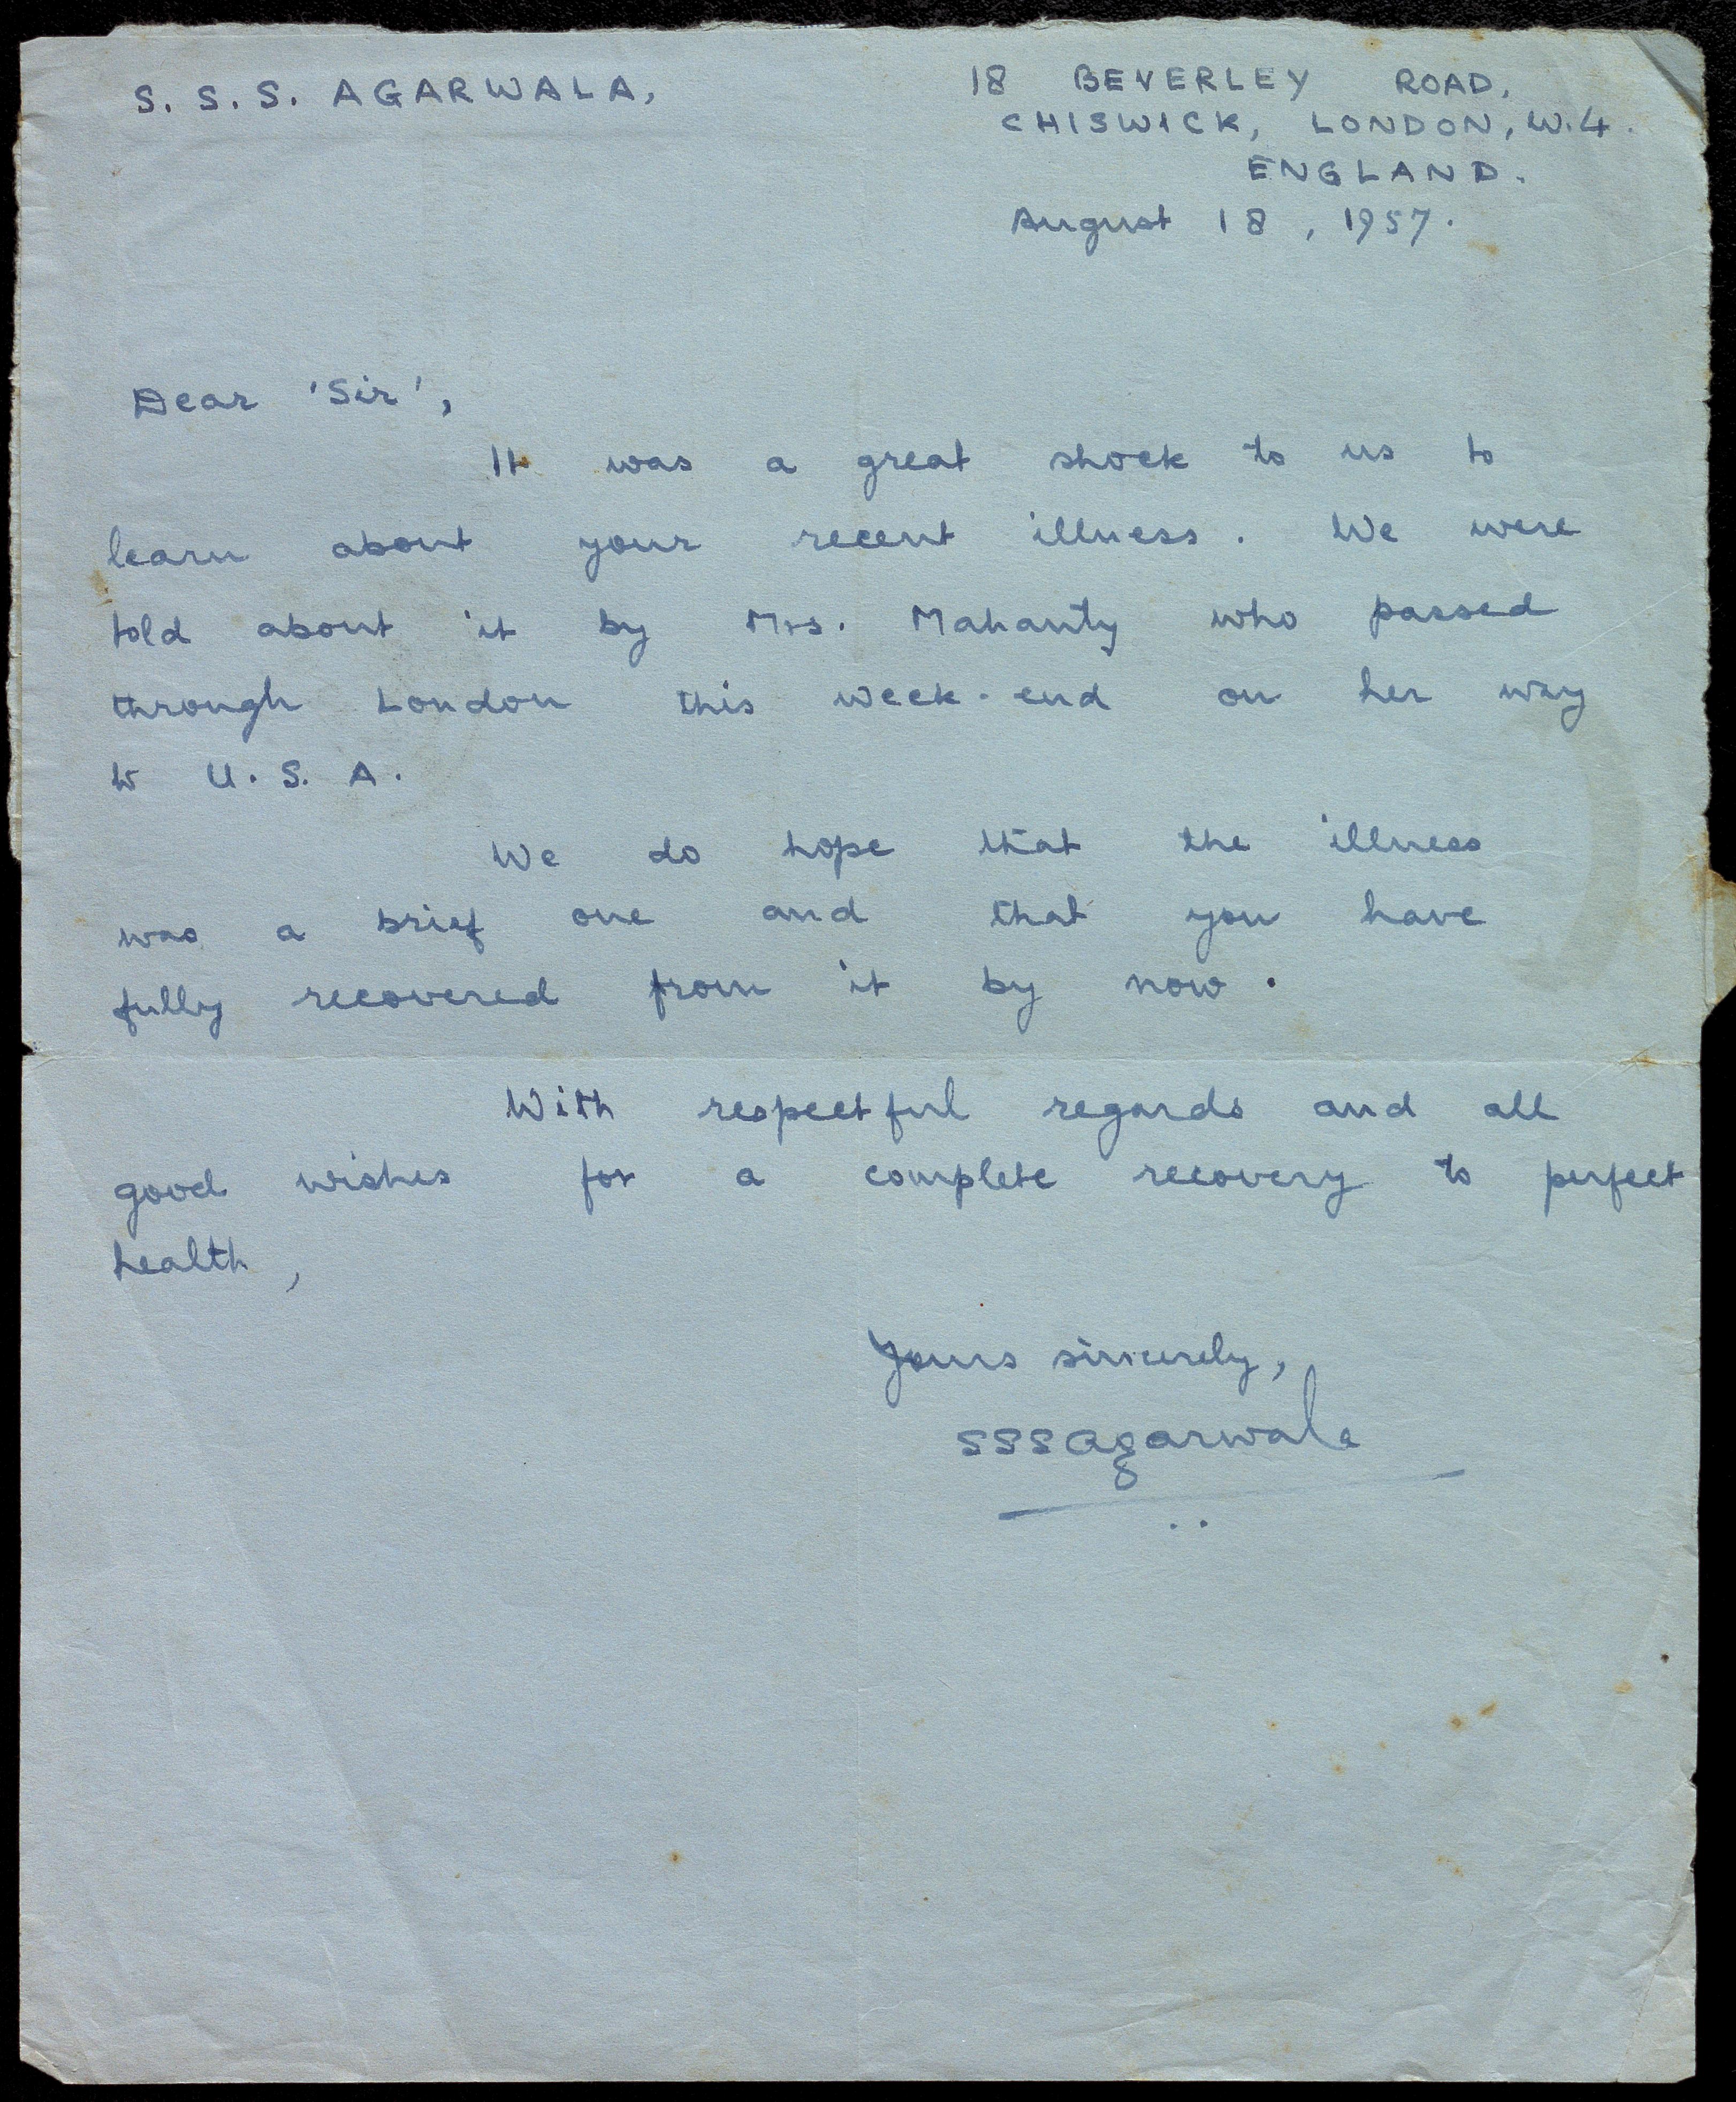 S. S. S. AGARWALA,
18 BEVERLEY ROAD,
CHISWICK, LONDON, W.4.
ENGLAND.
August 18, 1957.
Dear 'Sir',
It was a great shock to us to
learn about your recent illness. We were
told about it by Mrs. Mahanty who passed
through London this week-end on her way
to U.S.A.
We do hope that the illness
was a brief one and that you have
fully recovered from it by now.
With respectful regards and all
good wishes for a complete recovery to perfect
health,
Yours sincerely,
SSSAgarwala